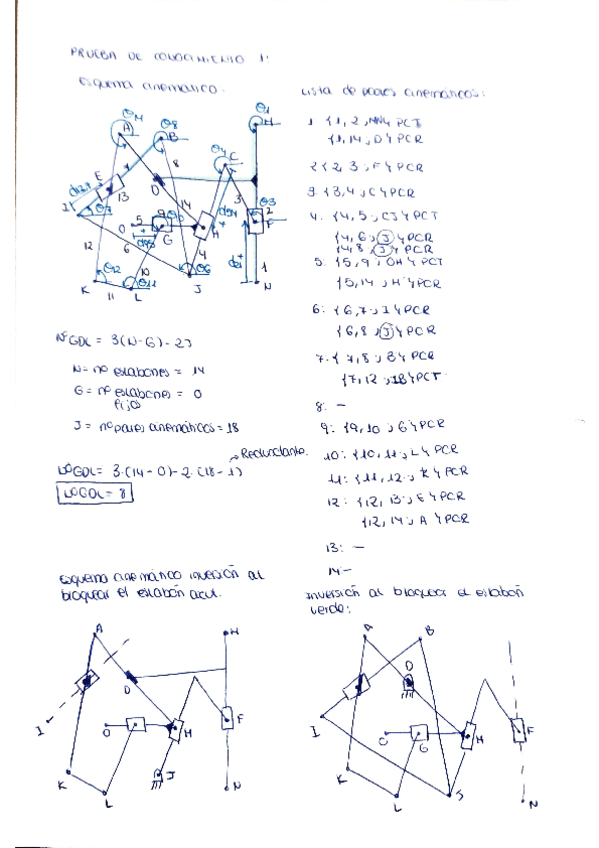 PRUEBA DE CONOCIMIENTO 1:
Esquema cinemático.
Lista de pares cinemáticos:
1 {1, 2, MN} PCT
{1, 14, D} PCR
2 {2, 3, F} PCR
3. {3, 4, C} PCR
4. {4, 5, CJ} PCT
{4, 6, J} PCR
{4, 8, J} PCR
5: {5, 9, OH} PCT
{5, 14, H} PCR
6: {6, 7, I} PCR
{6, 8, J} PCR
7. {7, 8, B} PCR
{7, 12, IB} PCT
8: —
9: {9, 10, G} PCR
10: {10, 11, L} PCR
11: {11, 12, K} PCR
12: {12, 13, E} PCR
{12, 14, A} PCR
13: —
14 —
NºGDL = 3(N-G) - 2J
N = nº eslabones = 14
G = nº eslabones = 0
fijos
J = nº pares cinemáticos = 18
Redundante.
NºGDL = 3·(14-0) - 2·(18-1)
NºGDL = 8
Esquema cinemático inversión al
bloquear el eslabón azul.
Inversión al bloquear el eslabón
verde:
A
H
D
I
O
H
F
J
K
L
N
A
B
D
I
O
G
H
F
K
L
J
N